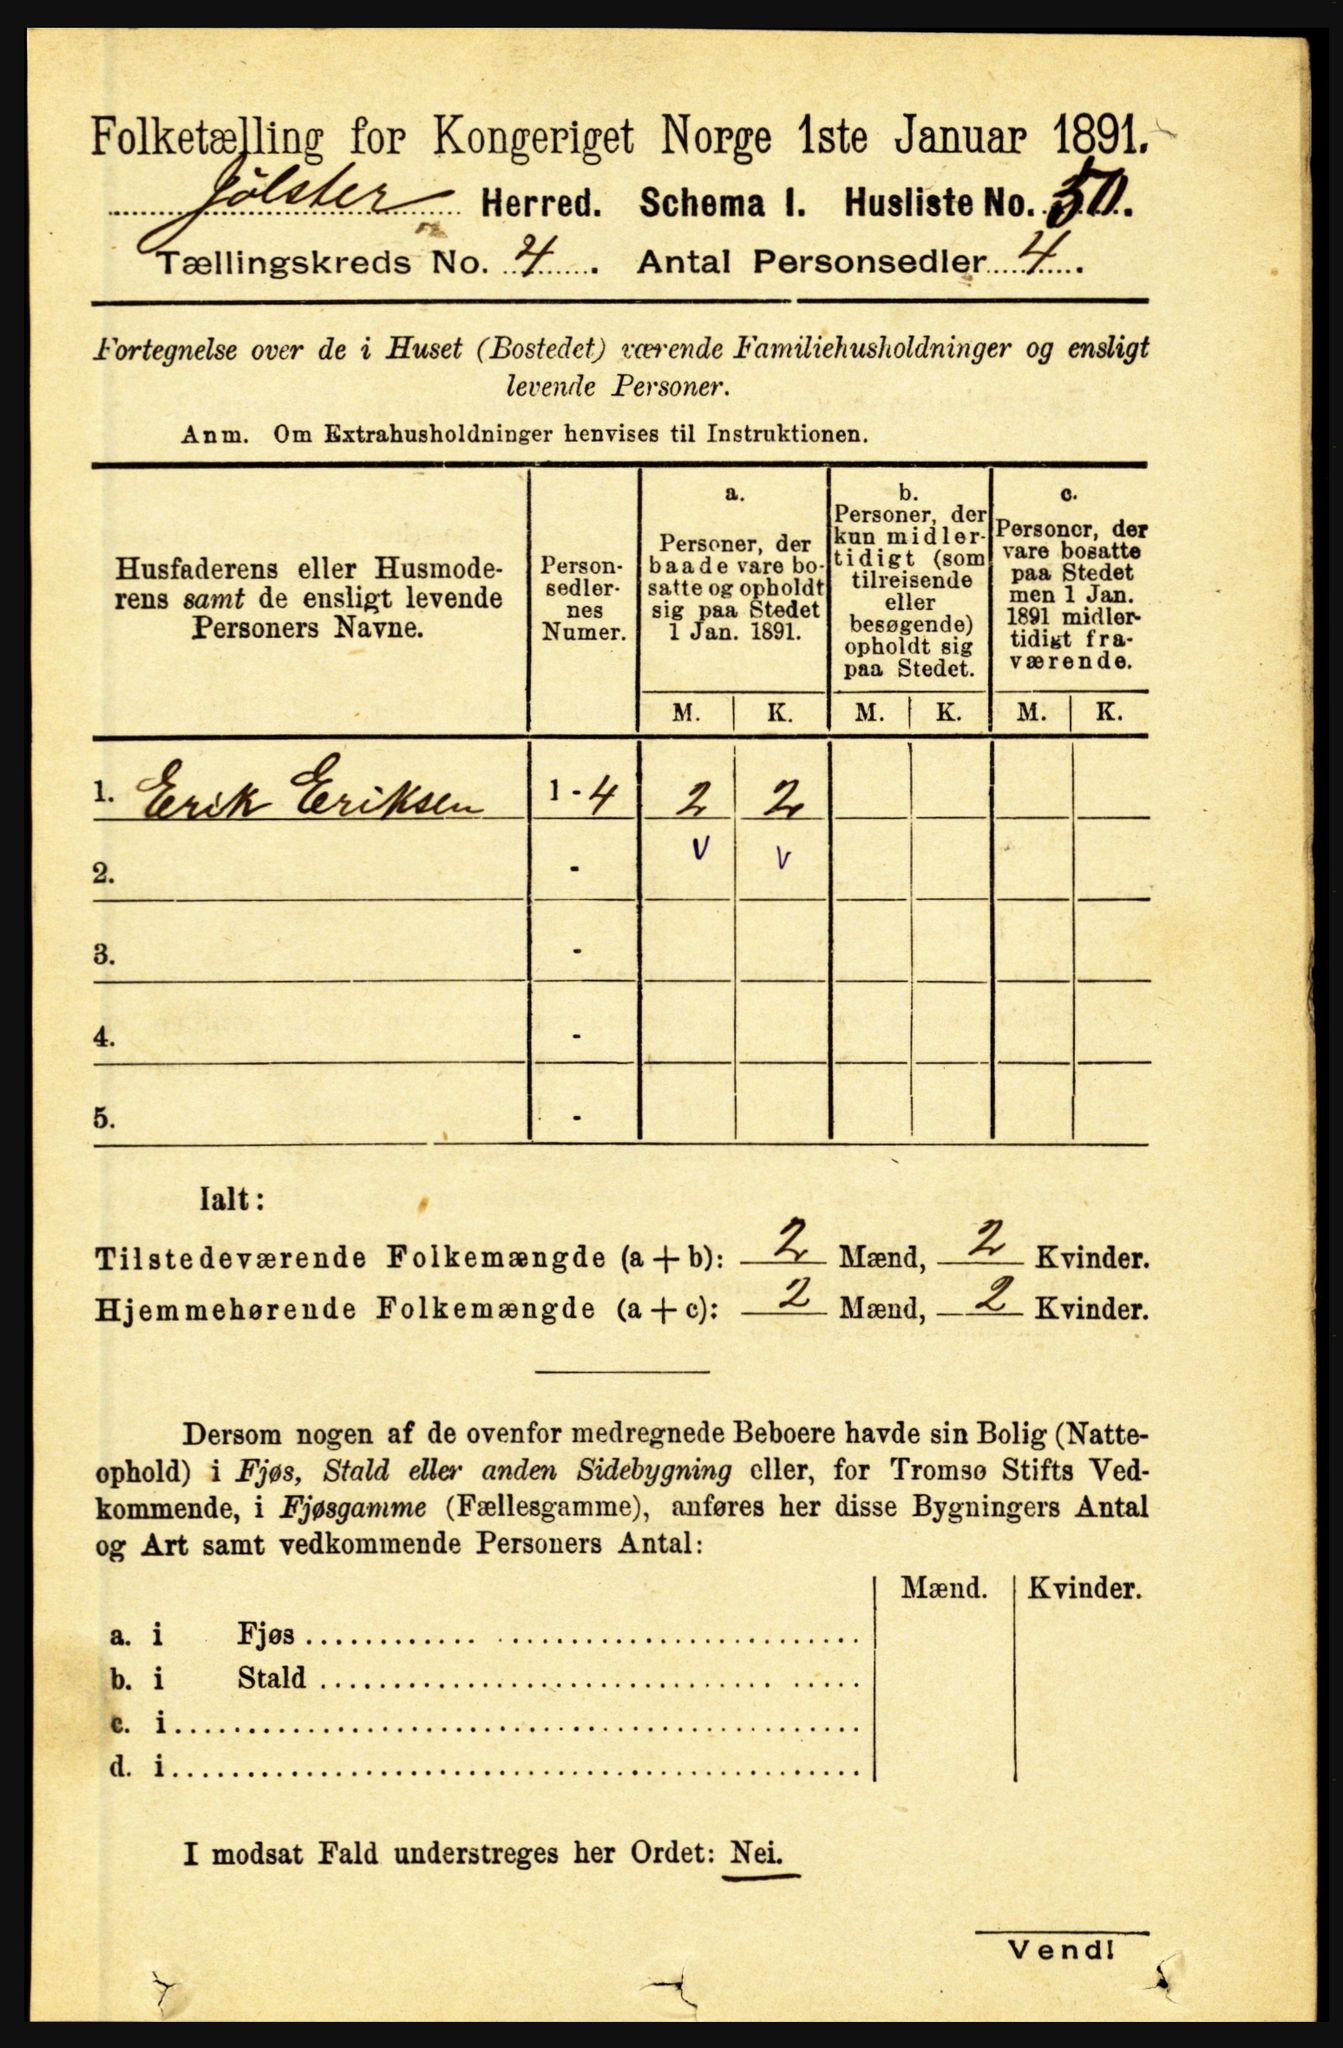 Folketælling for Kongeriget Norge 1ste Januar 1891.
Jølster Herred. Schema I. Husliste No. 50.
Tællingskreds No. 4. Antal Personsedler 4.
Fortegnelse over de i Huset (Bostedet) værende Familiehusholdninger og ensligt
levende Personer.
Anm. Om Extrahusholdninger henvises til Instruktionen.
Husfaderens eller Husmode-
rens samt de ensligt levende
Personers Navne.
Person-
sedler-
nes
Numer.
a.
Personer, der
baade vare bo-
satte og opholdt
sig paa Stedet
1 Jan. 1891.
b.
Personer, der
kun midler-
tidigt (som
tilreisende
eller
besøgende)
opholdt sig
paa Stedet.
c.
Personer, der
vare bosatte
paa Stedet
men 1 Jan.
1891 midler-
tidigt fra-
værende.
M. K. M. K. M. K.
1. Erik Eriksen 1 - 4 2 2
2. - v v
3. -
4. -
5. -
Ialt:
Tilstedeværende Folkemængde (a + b): 2 Mænd, 2 Kvinder.
Hjemmehørende Folkemængde (a + c): 2 Mænd, 2 Kvinder.
Dersom nogen af de ovenfor medregnede Beboere havde sin Bolig (Natte-
ophold) i Fjøs, Stald eller anden Sidebygning eller, for Tromsø Stifts Ved-
kommende, i Fjøsgamme (Fællesgamme), anføres her disse Bygningers Antal
og Art samt vedkommende Personers Antal:
Mænd. Kvinder.
a. i Fjøs
b. i Stald
c. i
d. i
I modsat Fald understreges her Ordet: Nei.
Vend!